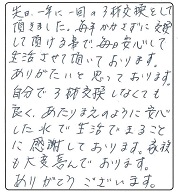 先日、一年に一回の3材交換をして
頂きました。毎年かかさずに交換
して頂ける事で、毎日安心して
生活させて頂いております。
ありがたいと思っております。
自分で3材交換しなくても
良く、あたりまえのように安心
した水で生活できること
に感謝しております。家族
も大変喜んでおります。
ありがとうございます。